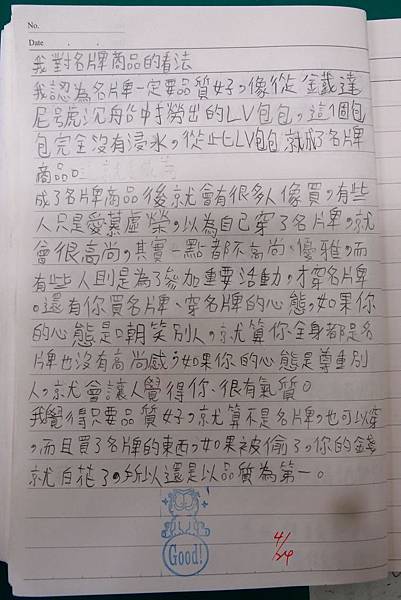 No.
Date
我對名牌商品的看法
我認為名牌一定要品質好,像從鐵達
尼號沉船中打撈出的LV包包,這個包
包完全沒有浸水,從此LV包包就成了名牌
商品。
成了名牌商品後就會有很多人像買,有些
人只是愛慕虛榮,以為自己穿了名牌,就
會很高尚,其實一點都不高尚、優雅,而
有些人則是為了參加重要活動,才穿名牌
。還有你買名牌、穿名牌的心態,如果你
的心態是嘲笑別人,就算你全身都是名
牌也沒有高尚感,如果你的心態是尊重別
人,就會讓人覺得你、很有氣質。
我覺得只要品質好,就算不是名牌,也可以穿
,而且買了名牌的東西,如果被偷了,你的錢
就白花了,所以還是以品質為第一。
Good!
4/24